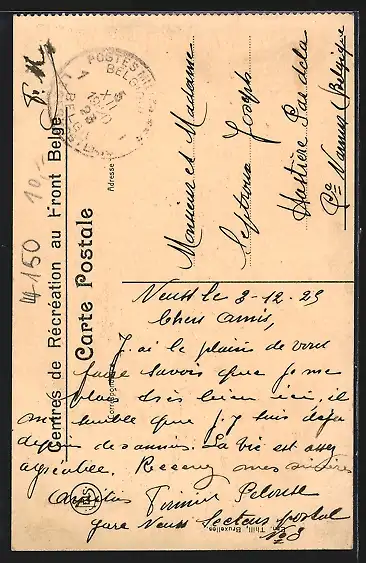 F. M.
POSTES MIL
BELG
5
XII
23
Centres de Récréation au Front Belge
Carte Postale
Adresse
Correspondance
Monsieur et Madame
Joseph
Hastière Par delà
Pce Namur (Belgique
Neuss le 3-12-23
Chers amis,
J'ai le plaisir de vous
faire savoir que je me
plais très bien ici, il
me semble que j'y suis déjà
depuis des années. La vie est assez
agréable. Recevez mes sincères
amitiés Firmin
gare Neuss Secteur postal
No 3
Thill, Bruxelles
10,-